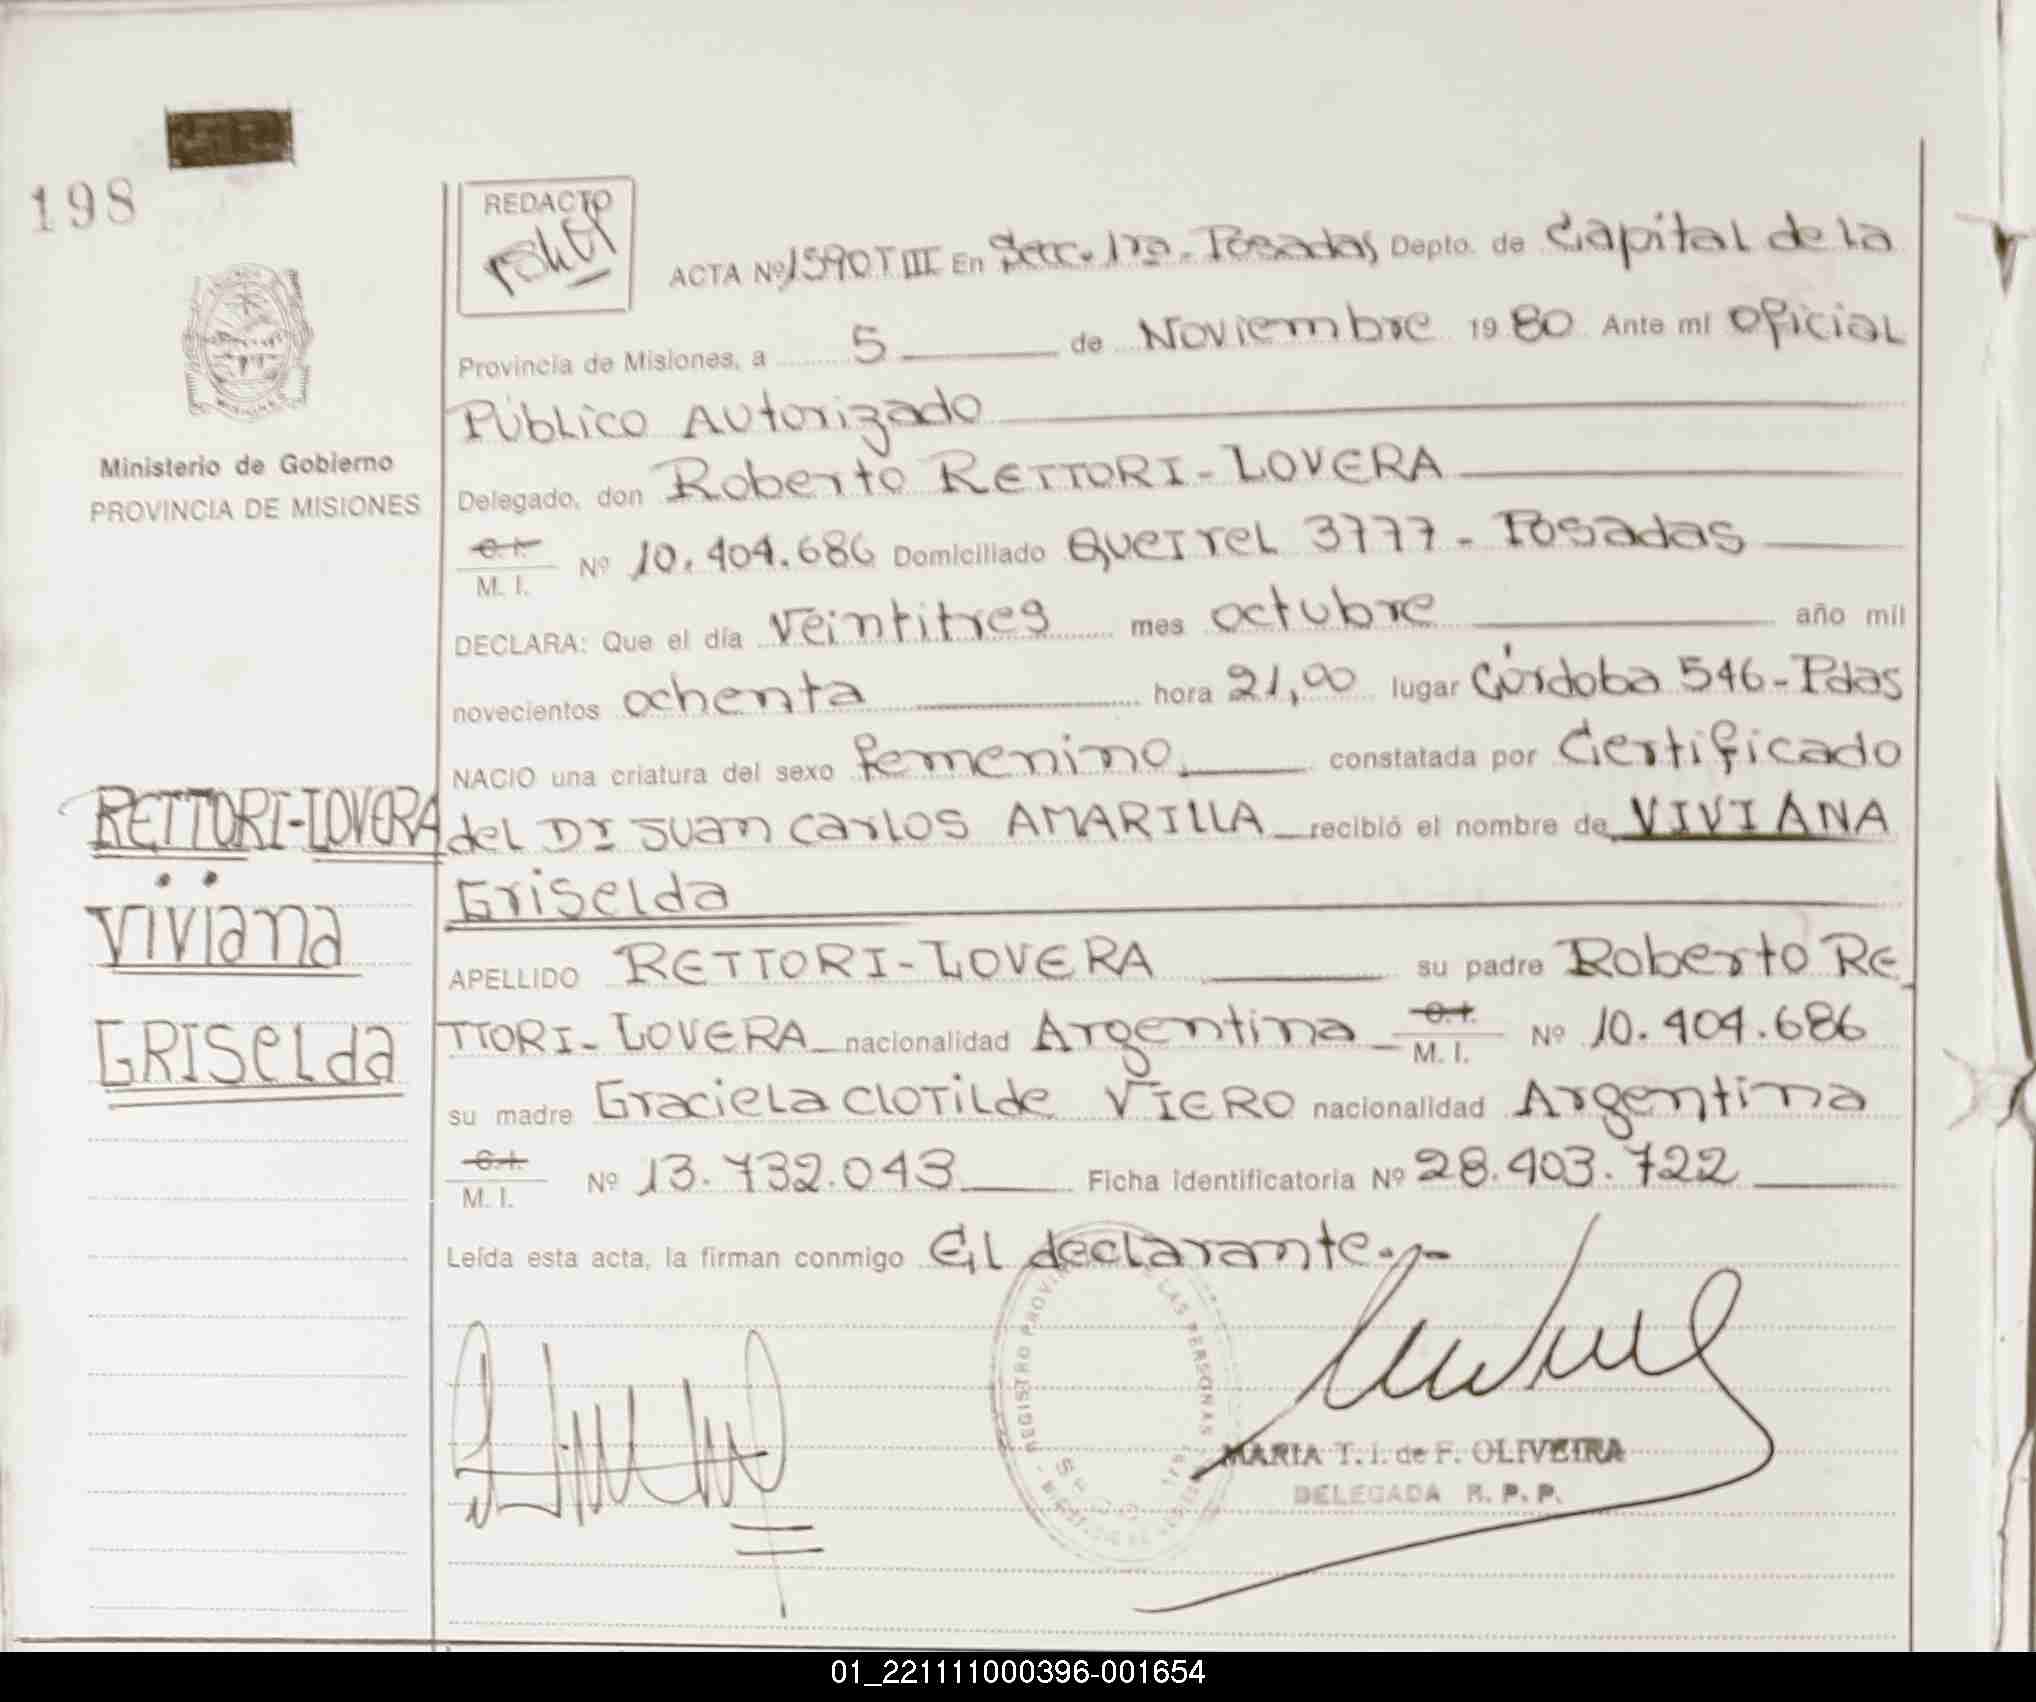 198
Ministerio de Gobierno
PROVINCIA DE MISIONES
RETTORI-LOVERA
Viviana
GRISELda
REDACTO
ACTA Nº 1590 T III En Secc. 1ra. Posadas Depto. de Capital de la
Provincia de Misiones, a 5 de Noviembre 1980 Ante mí Oficial
Público Autorizado
Delegado, don Roberto RETTORI-LOVERA
C.I. M. I. Nº 10.404.686 Domiciliado 3777 - Posadas
DECLARA: Que el día Veintitres mes octubre año mil
novecientos ochenta hora 21,00 lugar Córdoba 546-Pdas
NACIO una criatura del sexo femenino constatada por Certificado
del Dr Juan Carlos AMARILLA recibió el nombre de VIVIANA
Griselda
APELLIDO RETTORI-LOVERA su padre Roberto RE
TTORI-LOVERA nacionalidad Argentina C.I. M. I. Nº 10.404.686
su madre Graciela CLOTILde VIERO nacionalidad Argentina
C.I. M. I. Nº 13.732.043 Ficha identificatoria Nº 28.403.722
Leída esta acta, la firman conmigo El declarante.-
REGISTRO PROVIN LAS PERSONAS
MARIA T. I. de F. OLIVEIRA
DELEGADA R. P. P.
01_221111000396-001654